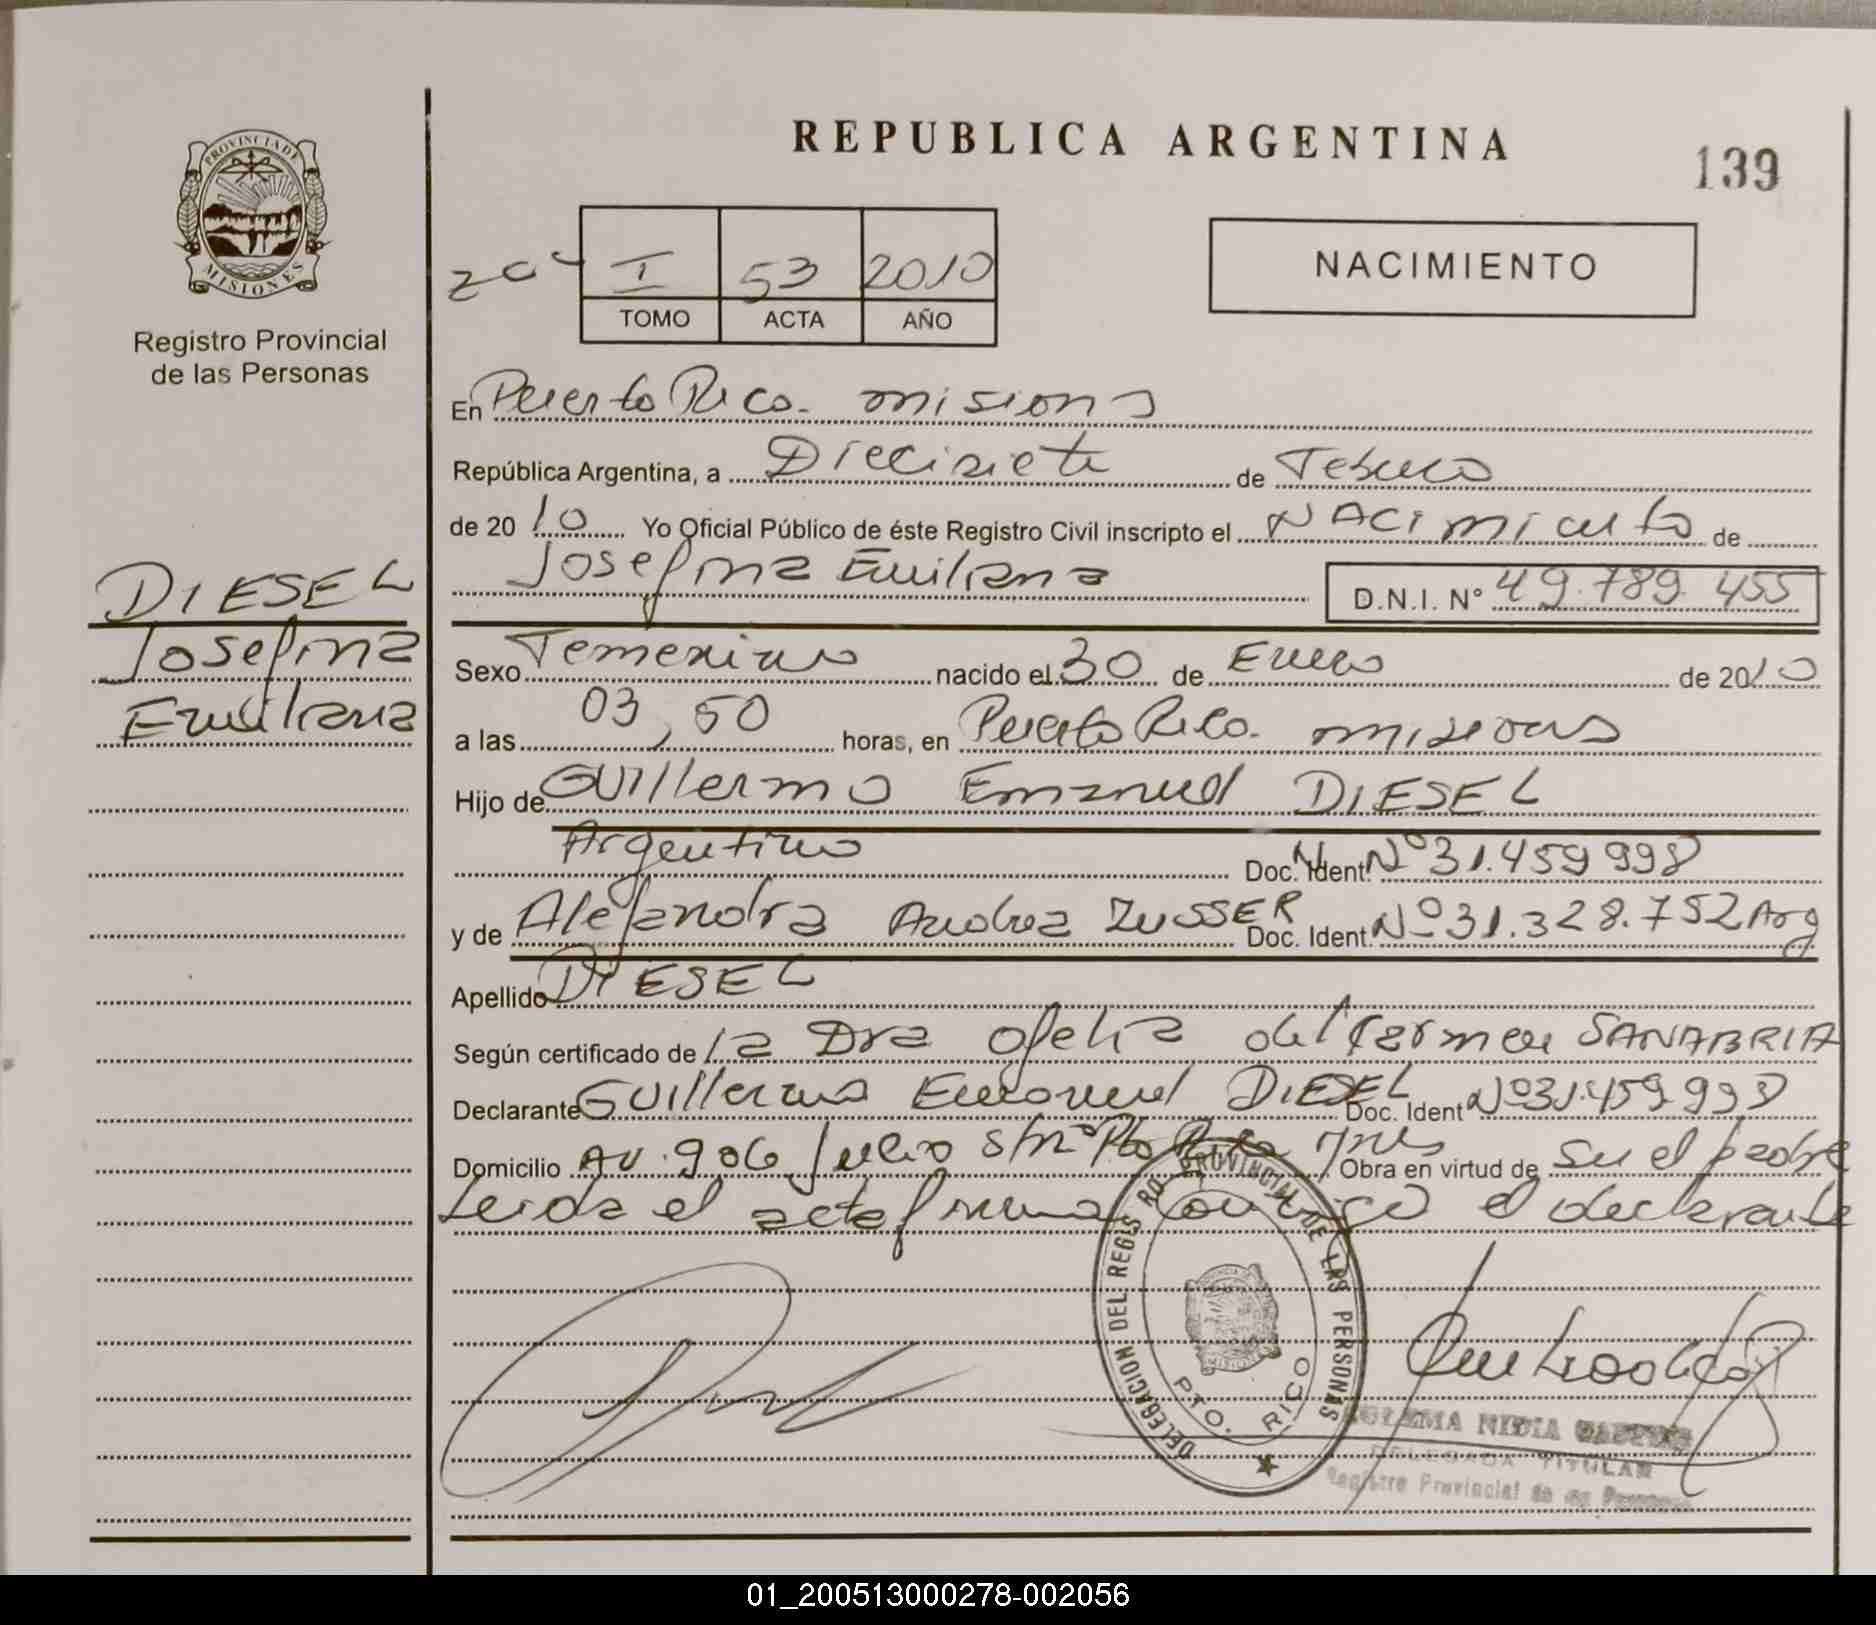 PROVINCIA DE
MISIONES
Registro Provincial
de las Personas
DIESEL
Josefina
Emiliana
REPUBLICA ARGENTINA
139
I 53 2010
TOMO ACTA AÑO
NACIMIENTO
En Puerto Rico. misiones
República Argentina, a Diecisiete de Febrero
de 20 10 Yo Oficial Público de éste Registro Civil inscripto el NACimiento de
Josefina Emiliana D.N.I. N° 49.789.455
Sexo Femenino nacido el 30 de Enero de 2010
a las 03,50 horas, en Puerto Rico. misiones
Hijo de Guillermo Emanuel DIESEL
Argentino Doc. Ident. N° 31.459.998
y de Alejandra Andrea ZUSSER Doc. Ident. N° 31.328.752 Arg
Apellido DIESEL
Según certificado de la Dra Ofelia del Carmen SANABRIA
Declarante Guillermo Emanuel DIESEL Doc. Ident N° 31.459.998
Domicilio AV. 9 de Julio s/n° Pto Rico Mnes Obra en virtud de su el padre
Leida el acta firma conmigo el declarante
DELEGACION DEL REGIS RO PROVINCIAL DE LAS PERSONAS
MISIONES
PTO. RICO
NIDIA
DELEGADA TITULAR
Registro Provincial de
01_200513000278-002056